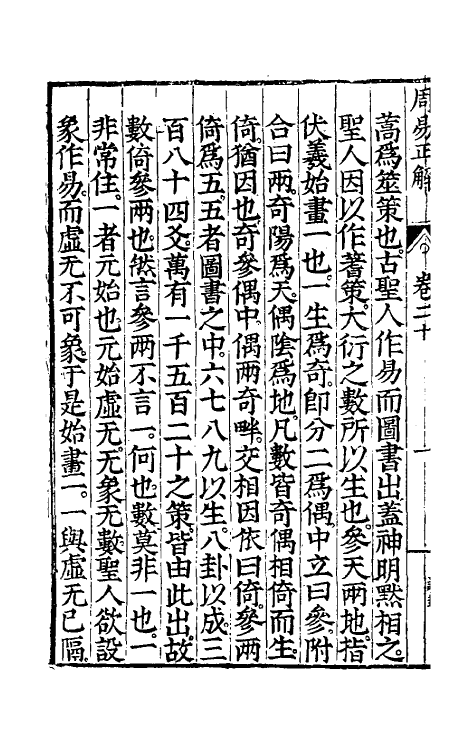 周易正解 卷二十 一
蒿爲筮策也。古聖人作易而圖書出蓋神明黙相之。
聖人因以作蓍策。大衍之數所以生也。參天兩地。指
伏羲始畫一也。一生爲奇。卽分二爲偶。中立曰參。附
合曰兩。奇陽爲天。偶陰爲地。凡數皆奇偶相倚而生。
倚。猶因也。奇參偶中。偶兩奇畔。交相因依曰倚。參兩
倚爲五。五者圖書之中。六七八九以生。八卦以成。三
百八十四爻。萬有一千五百二十之策。皆由此出。故
數倚參兩也。然言參兩不言一。何也。數莫非一也。一
非常住。一者元始也。元始虛无。无象无數。聖人欲設
象作易。而虛无不可象。于是始畫二。一與虛无已隔。